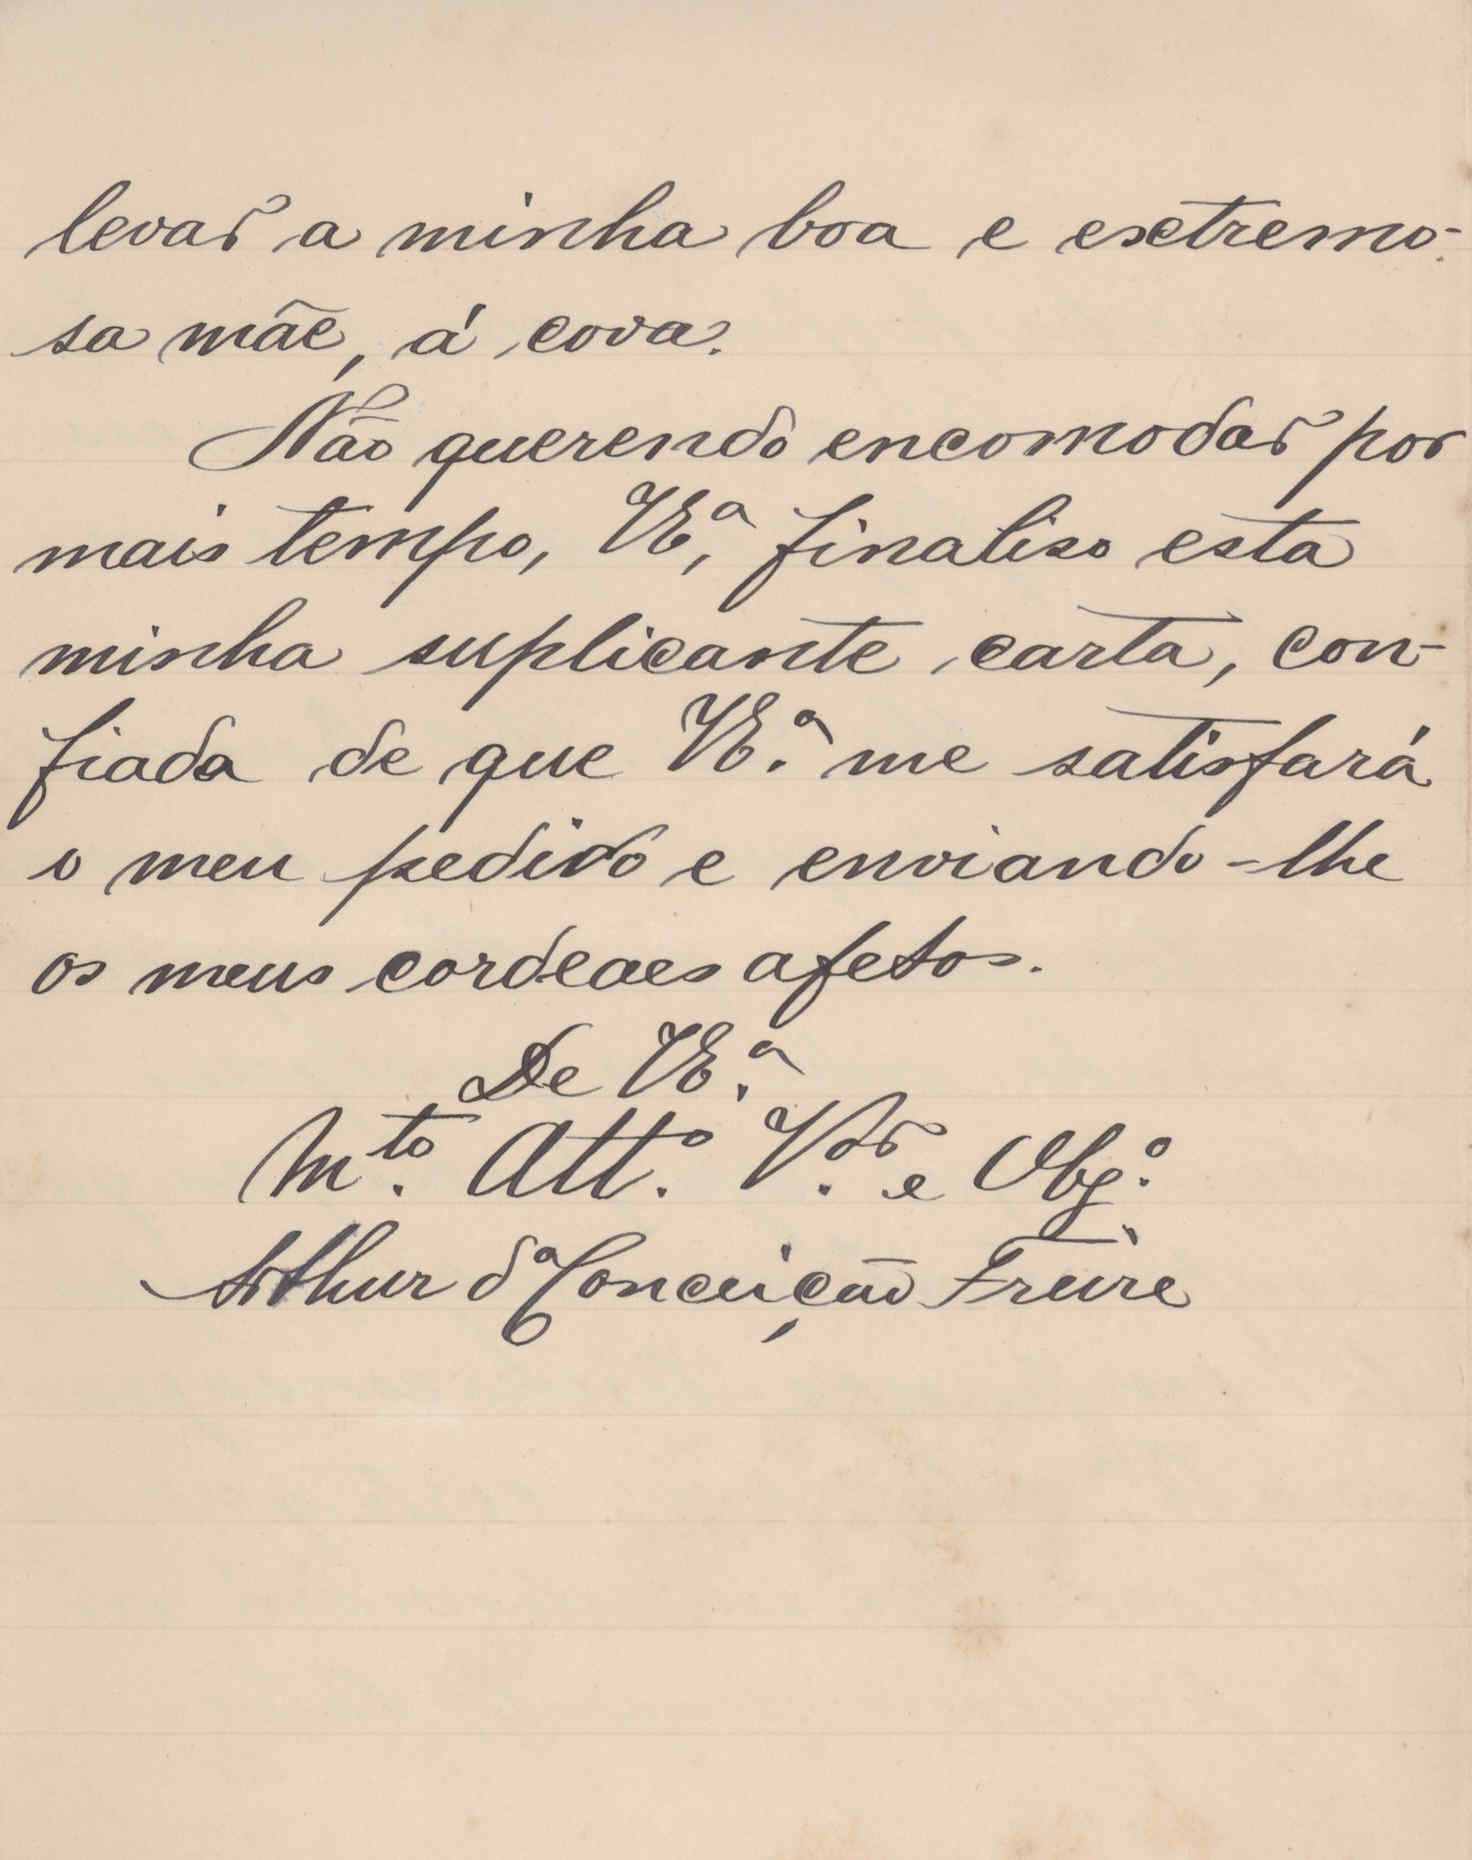 levar a minha boa e extremo-
sa mãe, á cova.
Não querendo encomodar por
mais tempo, V.E.ª, finaliso esta
minha suplicante carta, con-
fiada de que V.E.ª me satisfará
o meu pedido e enviando-lhe
os meus cordeaes afetos.
De V.E.ª
M.to Att.º V.or e Obg.º
Arthur da Conceição Freire